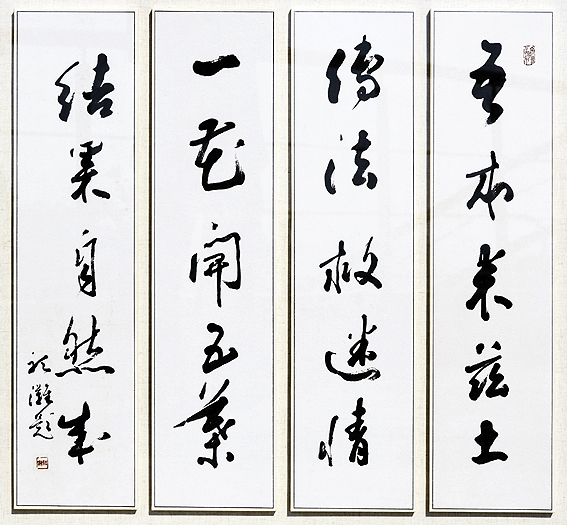 吾本来兹土
傳法救迷情
一花開五葉
結果自然成